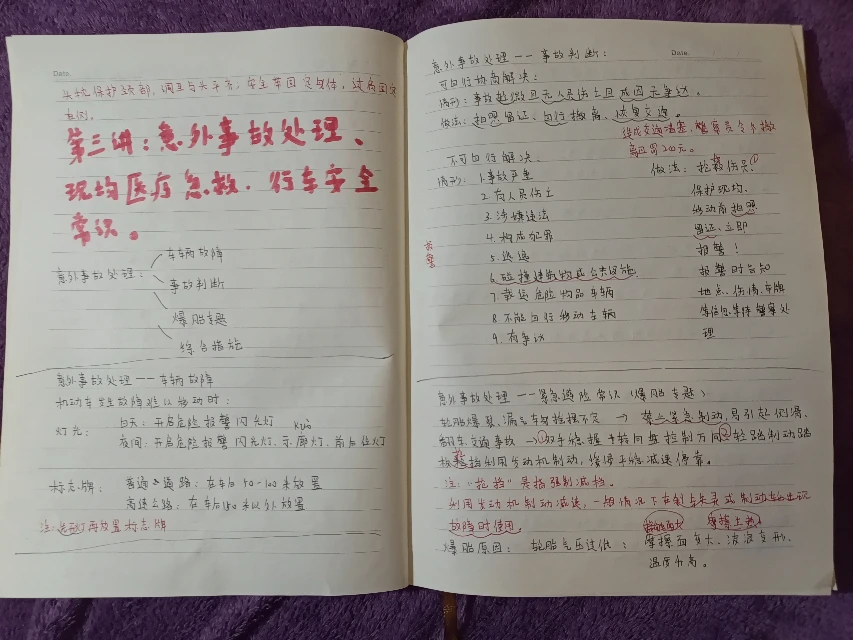 Date.
头枕保护颈部,调至与头平齐,安全带固定身体,续病固定
直例。
第三讲:意外事故处理、
现场医疗急救.行车安全
常识。
意外事故处理:
车辆故障
事故判断
爆胎专题
综合措施
意外事故处理——车辆故障
机动车发生故障难以移动时:
灯光:
白天:开启危险报警闪光灯
夜间:开启危险报警闪光灯、示廓灯、前后位灯
kuò
标志牌:
普通道路:在车后50-100米放置
高速公路:在车后150米以外放置
注:先开灯再放置标志牌
意外事故处理——事故判断:
Date.
可自行协商解决:
情形:事故轻微且无人员伤亡且成因无争议。
做法:拍照留证、自行撤离、恢复交通。
造成交通堵塞,警察责令撤
离且罚200元。
不可自行解决.
情形:1.事故严重
2.有人员伤亡
3.涉嫌违法
4.构成犯罪
5.逃逸
6.碰撞建筑物或公共设施
7.载运危险物品车辆
8.不能自行移动车辆
9.有争议
报警
做法:抢救伤员!
保护现场.
移动前拍照
留证、立即
报警!
报警时告知
地点、伤情、车牌
等信息,等待警察处
理
意外事故处理——紧急避险常识(爆胎专题)
轮胎爆裂、漏气车易摇摆不定 → 禁止紧急制动,易引起侧滑、
翻车,交通事故 →①双手稳握转向盘控制方向②轻踏制动踏
板抢挡利用发动机制动,缓慢平稳减速停靠。
注:“抢挡”是指强制减挡。
利用发动机制动减速,一般情况下在刹车失灵或制动
故障时使用。
爆胎原因: 轮胎气压过低: 摩擦面变大、波浪变形、
温度升高。